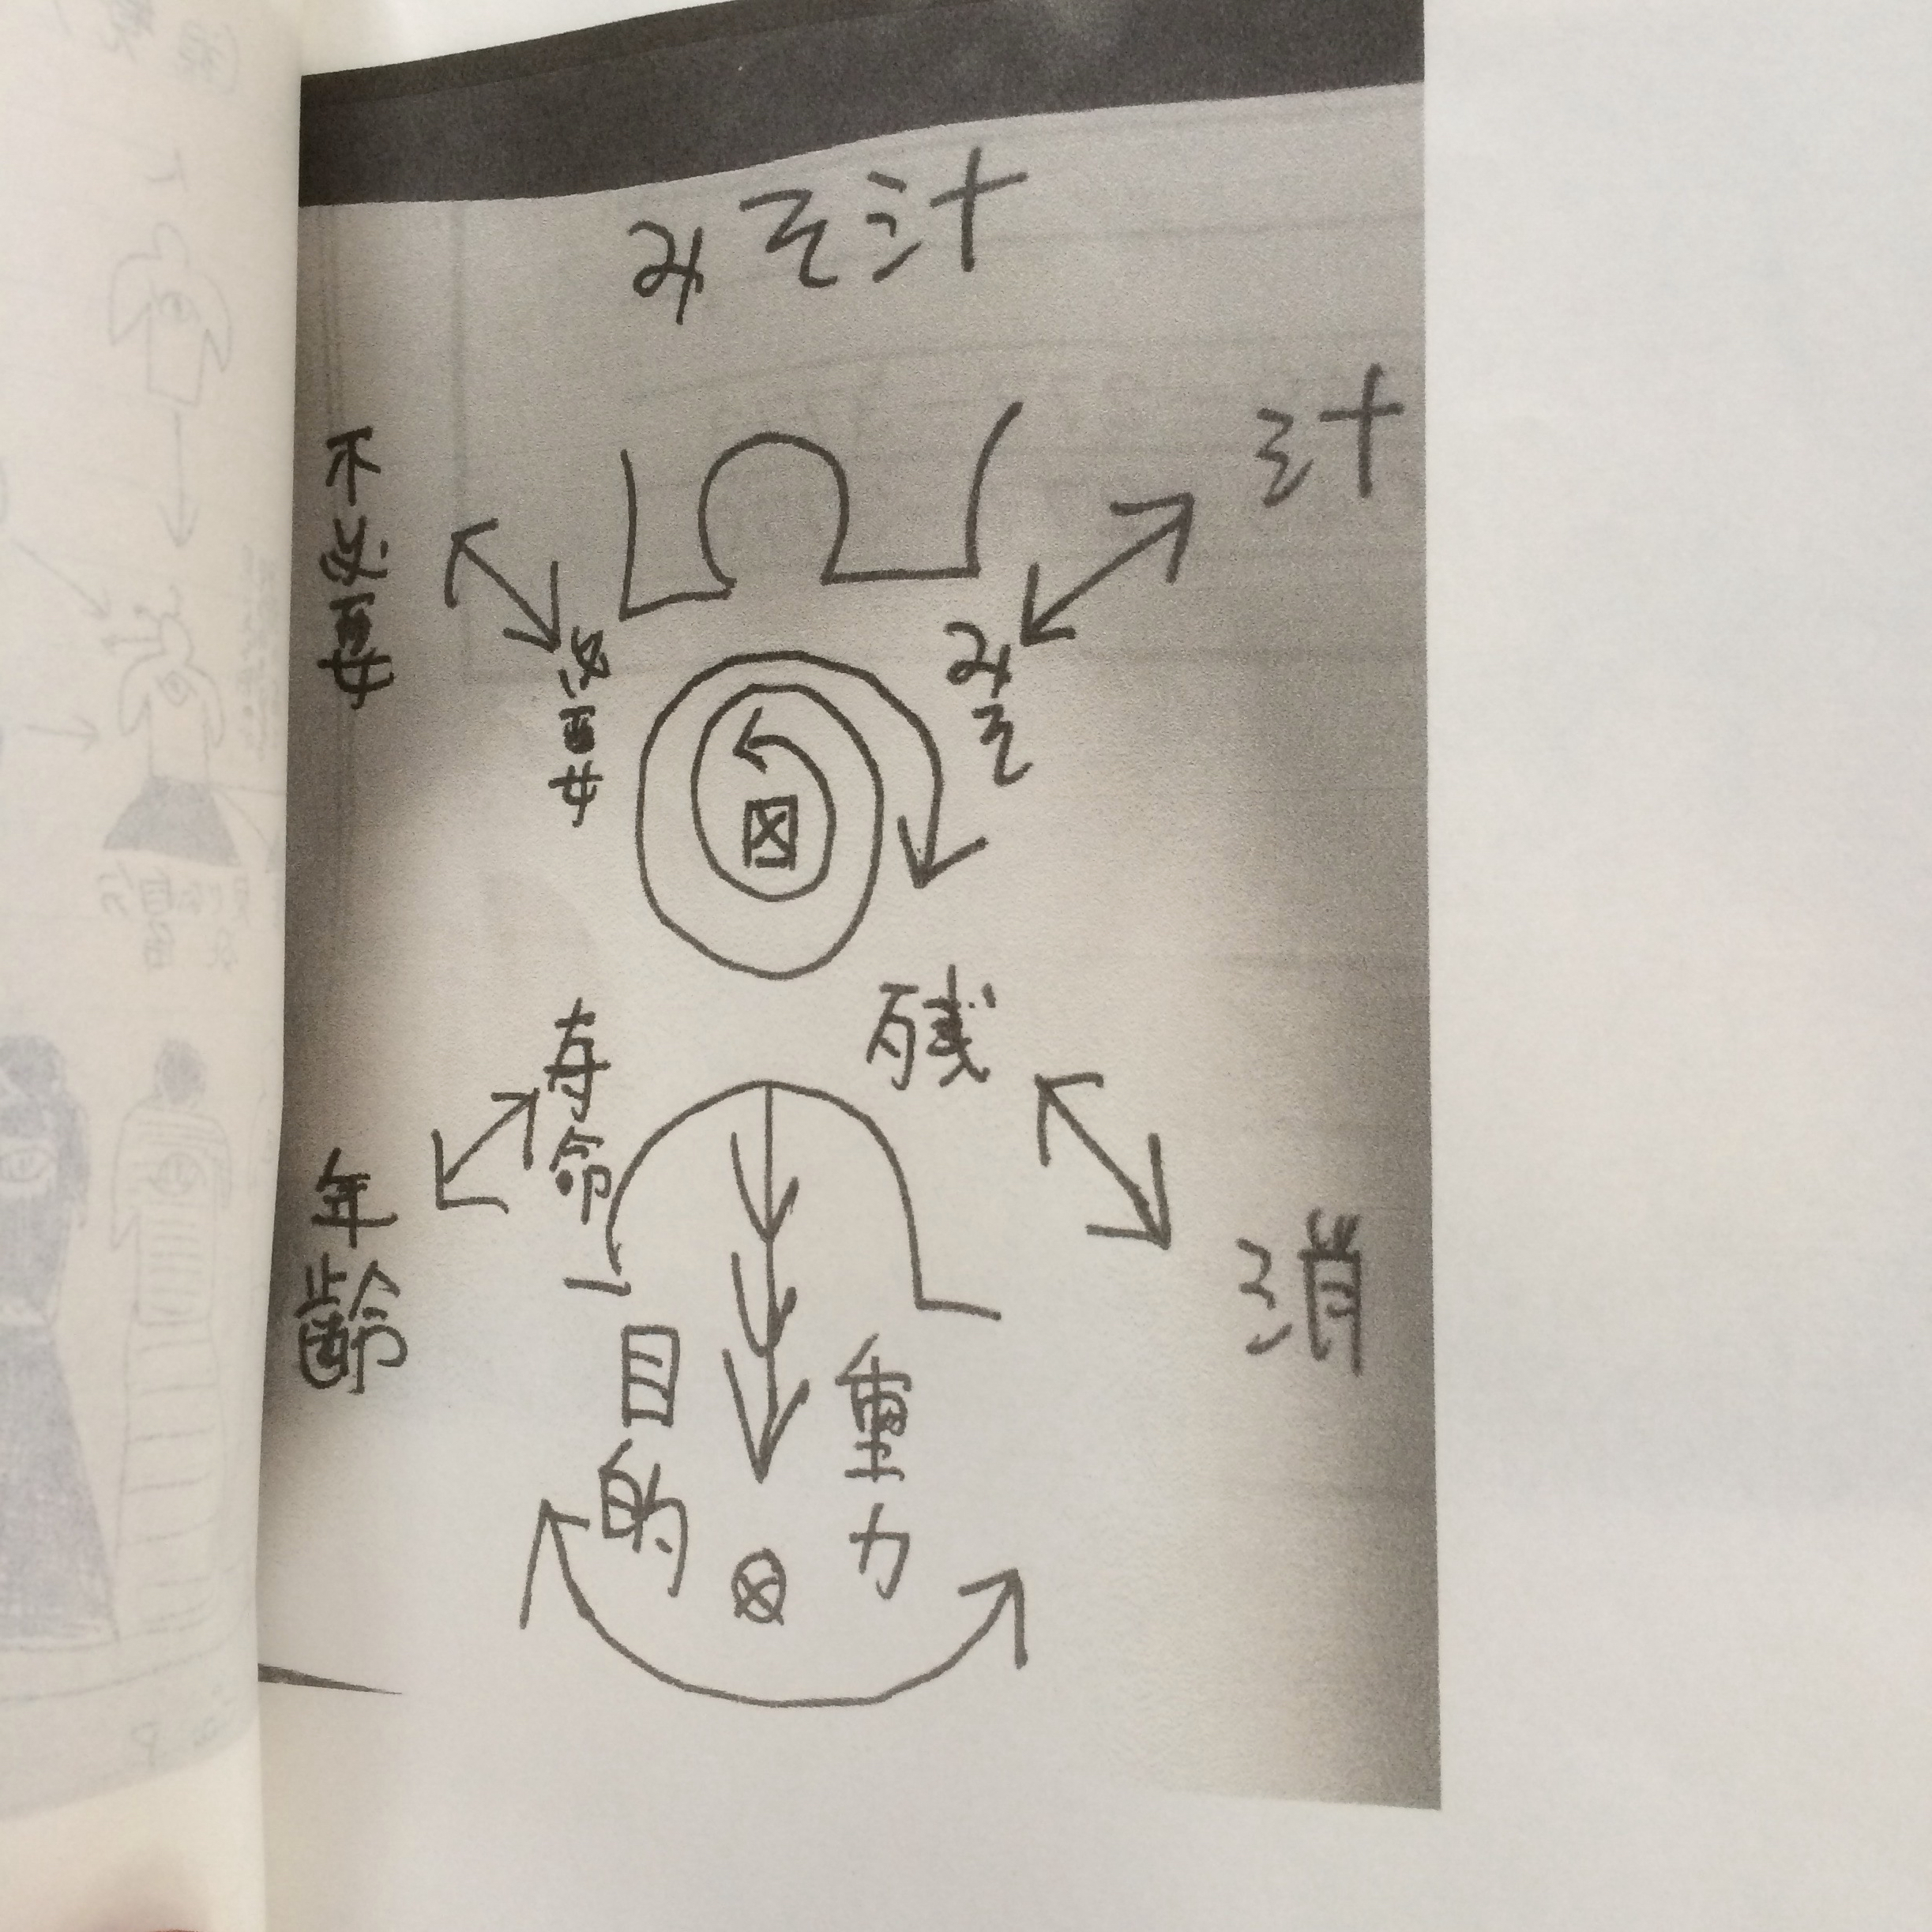 みそ汁
汁
みそ
不必要
必要
残
消
寿命
年齢
重力
目的